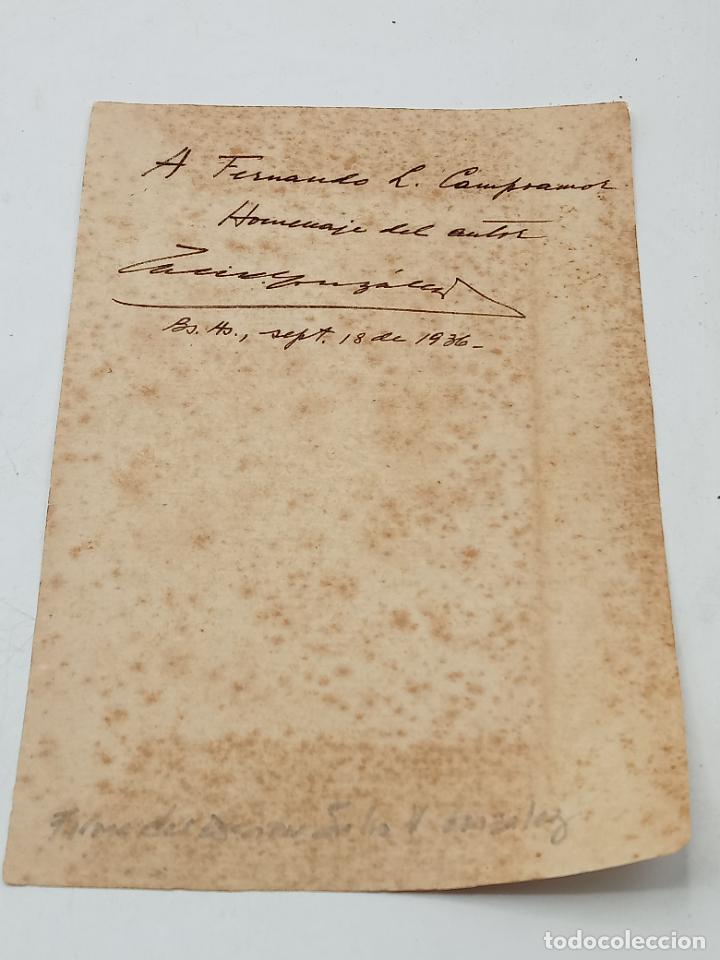 A Fernando L. Campoamor.
Homenaje del autor
González
Bs. As., sept. 18 de 1936_
Firma del Julio V González
todocoleccion
todocoleccion.net